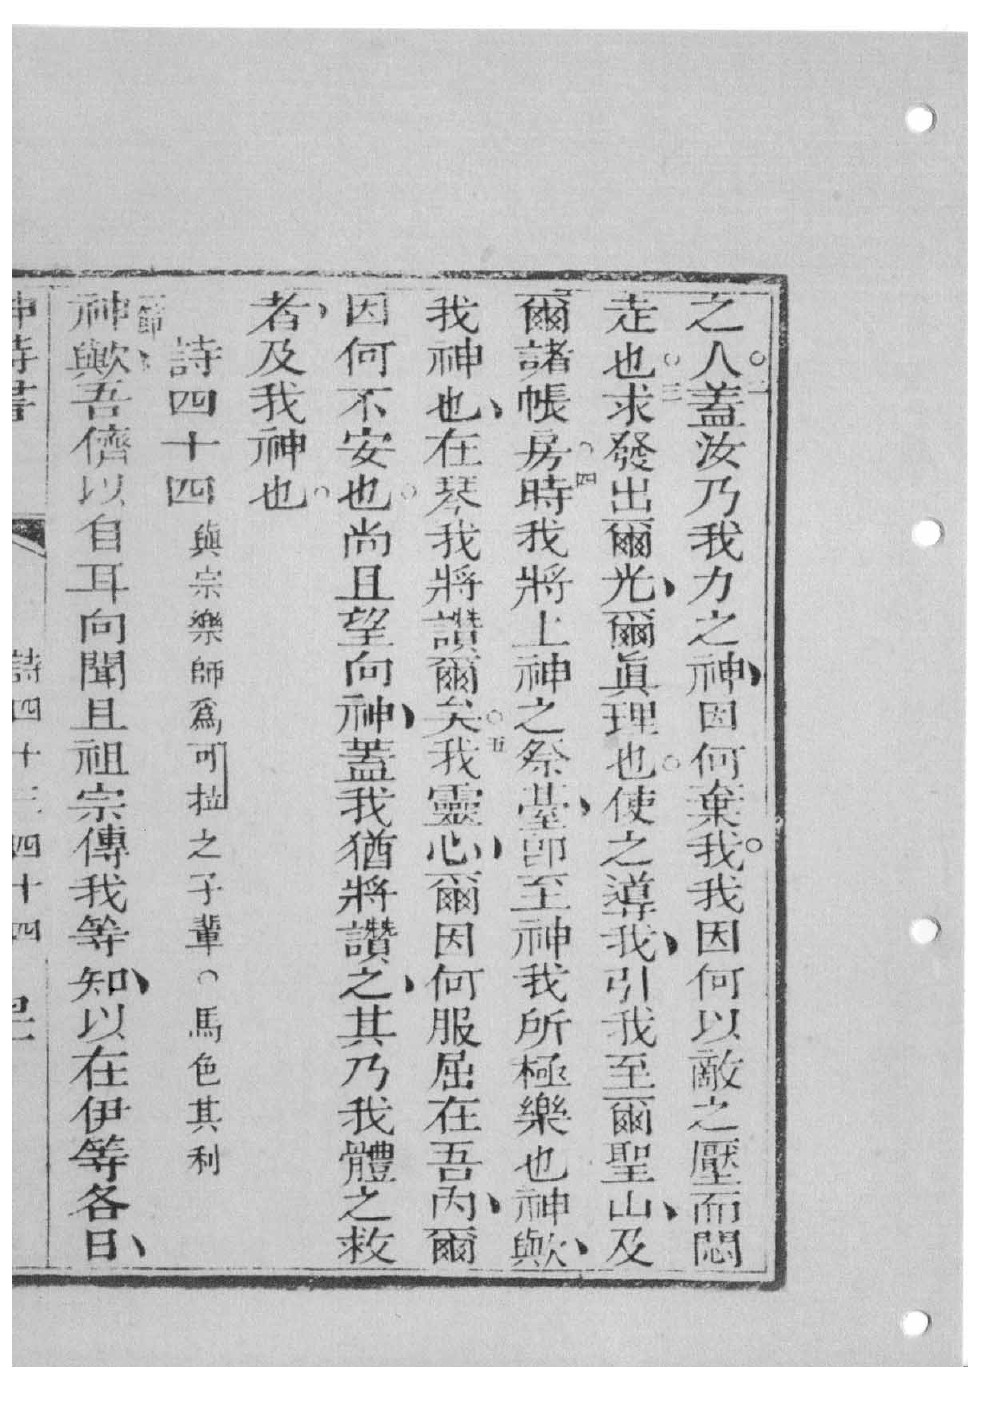 之人。二蓋汝乃我力之神、因何棄我。我因何以敵之壓而悶
走也。三求發出爾光、爾眞理也。使之導我、引我至爾聖山、及
爾諸帳房。四時我將上神之祭臺、卽至神我所極樂也神歟、
我神也、在琴我將讚爾矣。五我靈心、爾因何服屈在吾內、爾
因何不安也。尚且望向神、蓋我猶將讚之、其乃我體之救
者、及我神也。
詩四十四 與宗樂師爲可拉之子輩○馬色其利
節
神歟、吾儕以自耳向聞且祖宗傳我等知、以在伊等各日、
神詩書 詩四十三 四十四